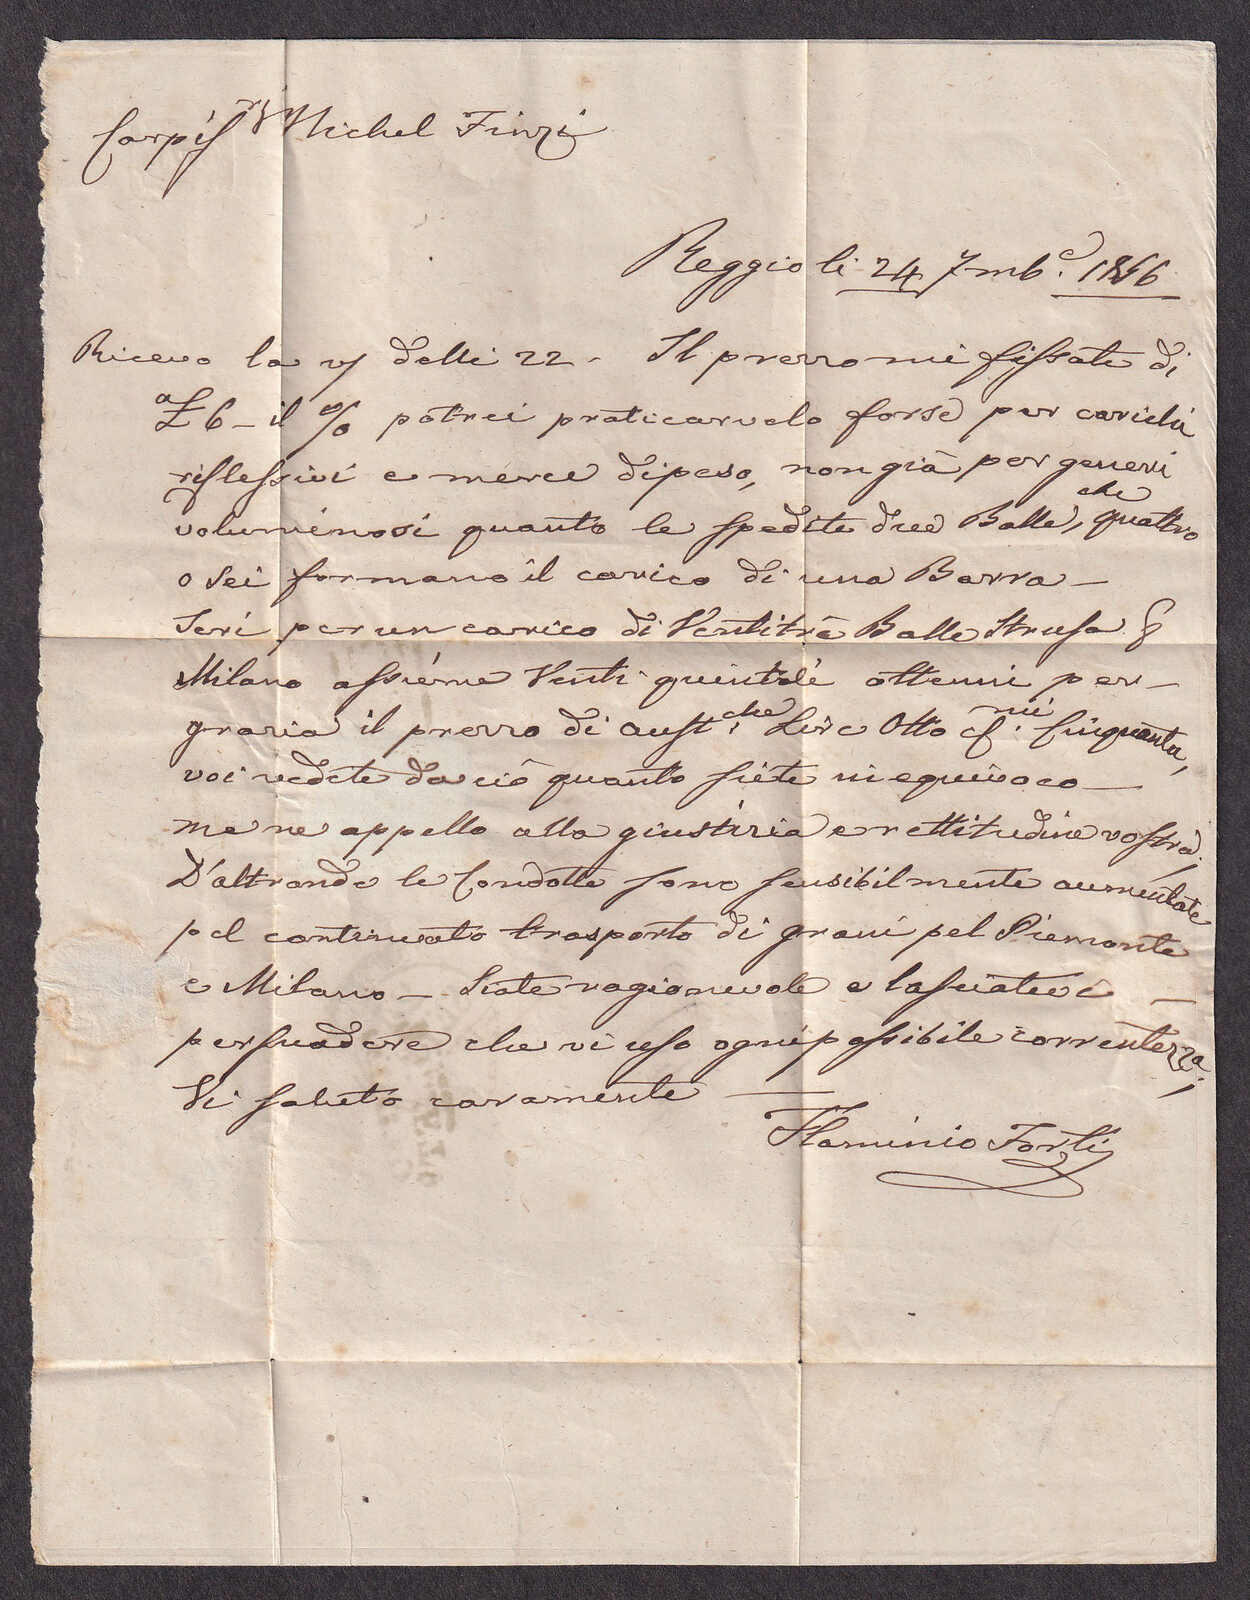 Carpi Sr Michel Finzi
Reggio li 24 7mbe. 1856
Ricevo la vs delli 22 - Il prezzo mi fissate di
£ 6 - il % potrei praticarvelo forse per carichi
riflessivi e merce di peso, non già per generi
voluminosi quanto le spedite due Balle, che quattro
o sei formano il carico di una Barra -
Ieri per un carico di Ventitrè Balle Strusa
Milano assieme Venti quintali ottenni per
grazia il prezzo di Austche. Lire Otto Cmi. Cinquanta,
voi vedete da ciò quanto siete in equivoco -
me ne appello alla giustizia e rettitudine vostra;
D'altronde le Condotte sono sensibilmente aumentate
pel continuato trasporto di grani pel Piemonte
e Milano - Siate ragionevole e lasciatevi -
persuadere che vi uso ogni possibile correntezza;
Vi saluto caramente -
Flaminio Forti